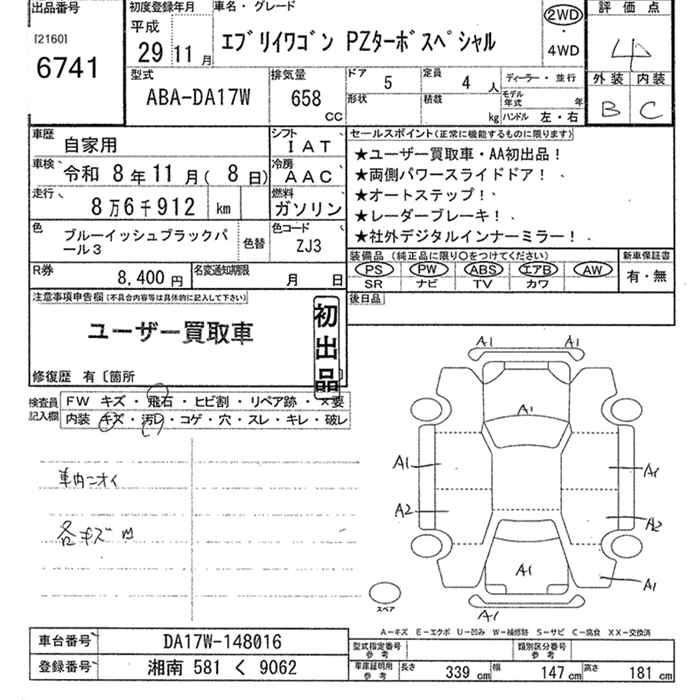 出品番号 初度登録年月 車名・グレード 評価点
[2160] 平成
6741 29年 11月 エブリイワゴン PZターボスペシャル 2WD ・ 4WD 4
型式 排気量 ドア 5 定員 4人 ディーラー・並行 外装 内装
ABA-DA17W 658 CC 形状 積載 kg モデル年式 年 B C
ハンドル 左・右
車歴 自家用 シフト IAT セールスポイント(正常に機能するものに限ります)
車検 令和 8年 11月( 8日) 冷房 AAC ★ユーザー買取車・AA初出品!
★両側パワースライドドア!
走行 8万6千912 km 燃料 ガソリン ★オートステップ!
★レーダーブレーキ!
色 ブルーイッシュブラックパール3 色替 色コード ZJ3 ★社外デジタルインナーミラー!
装備品(純正品に限り○をつけてください) 新車保証書
R券 8,400円 名変通知期限 月 日 PS PW ABS エアB AW 有・無
SR ナビ TV カワ
注意事項申告欄(不具合内容等は具体的に記入して下さい) 後日品
ユーザー買取車 初出品
修復歴 有〔箇所
検査員記入欄 FW キズ・飛石・ヒビ割・リペア跡・×要
内装 キズ・汚レ・コゲ・穴・スレ・キレ・破レ
A1 A1
A1
車内ニオイ A1 A1
各キズ凹 A2 A2
A1 A1
スペア A1
A-キズ E-エクボ U-凹み W-補修跡 S-サビ C-腐食 XX-交換済
車台番号 DA17W-148016 型式指定番号 参考 類別区分番号 参考
登録番号 湘南 581 く 9062 車庫証明用 参考 長さ 339cm 幅 147cm 高さ 181cm